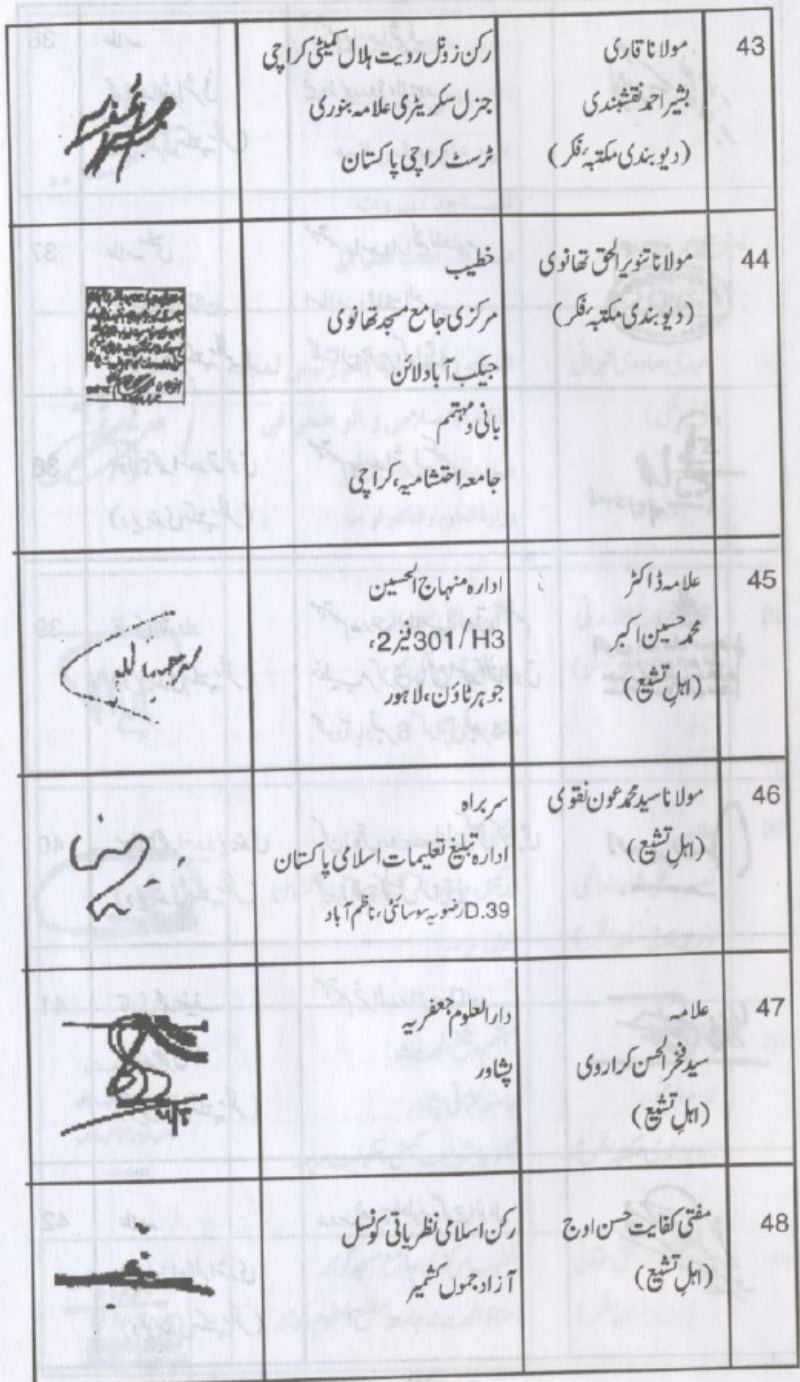 43
مولانا قاری
بشیر احمد نقشبندی
(دیوبندی مکتبہ فکر)
رکن زونل رویت ہلال کمیٹی کراچی
جنرل سکریٹری علامہ بنوری
ٹرسٹ کراچی پاکستان
44
مولانا تنویر الحق تھانوی
(دیوبندی مکتبہ فکر)
خطیب
مرکزی جامع مسجد تھانوی
جیکب آباد لائن
بانی و مہتمم
جامعہ احتشامیہ، کراچی
45
علامہ ڈاکٹر
محمد حسین اکبر
(اہل تشیع)
ادارہ منہاج الحسین
301/H3 فیز2،
جوہر ٹاؤن، لاہور
46
مولانا سید محمد عون نقوی
(اہل تشیع)
سربراہ
ادارہ تبلیغ تعلیمات اسلامی پاکستان
D.39 رضویہ سوسائٹی، ناظم آباد
47
علامہ
سید فخر الحسن کراروی
(اہل تشیع)
دارالعلوم جعفریہ
پشاور
48
مفتی کفایت حسن اوج
(اہل تشیع)
رکن اسلامی نظریاتی کونسل
آزاد جموں کشمیر